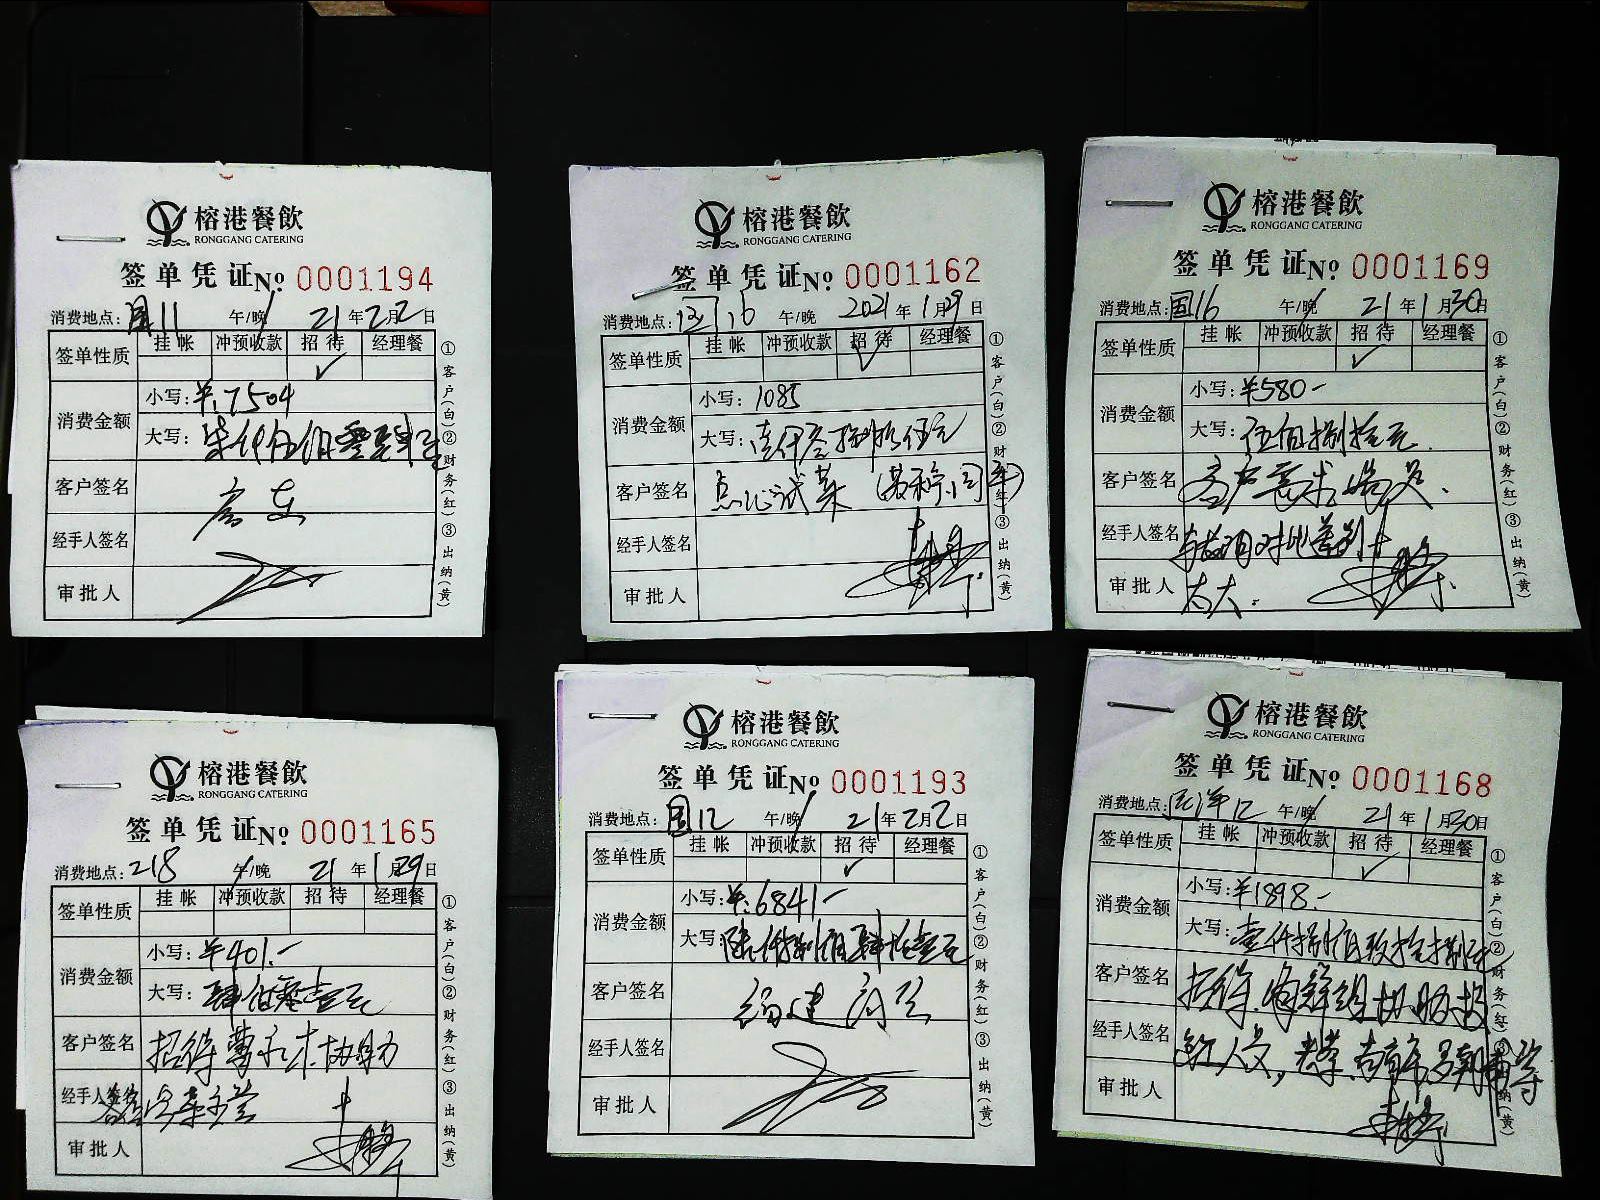 榕港餐飲
RONGGANG CATERING
签单凭证 No 0001194
消费地点: 国11 午/晚 21年2月2日
签单性质 挂帐 冲预收款 招待 经理餐
✓
消费金额 小写: ¥:7504
大写: 柒仟伍佰零肆元
客户签名
经手人签名
审批人
①客户(白)②财务(红)③出纳(黄)
榕港餐飲
RONGGANG CATERING
签单凭证 No 0001162
消费地点: 16 午/晚 2021年1月29日
签单性质 挂帐 冲预收款 招待 经理餐
✓
消费金额 小写: 1085
大写: 壹仟零捌拾伍元
客户签名 点心试菜
经手人签名
审批人
①客户(白)②财务(红)③出纳(黄)
榕港餐飲
RONGGANG CATERING
签单凭证 No 0001169
消费地点: 国16 午/晚 21年1月30日
签单性质 挂帐 冲预收款 招待 经理餐
✓
消费金额 小写: ¥580-
大写: 伍佰捌拾元
客户签名 客户
经手人签名
审批人 太大.
①客户(白)②财务(红)③出纳(黄)
榕港餐飲
RONGGANG CATERING
签单凭证 No 0001165
消费地点: 218 午/晚 21年1月29日
签单性质 挂帐 冲预收款 招待 经理餐
消费金额 小写: ¥401.-
大写: 肆佰零壹元
客户签名 招待 协助
经手人签名
审批人
①客户(白)②财务(红)③出纳(黄)
榕港餐飲
RONGGANG CATERING
签单凭证 No 0001193
消费地点: 国12 午/晚 21年2月2日
签单性质 挂帐 冲预收款 招待 经理餐
✓
消费金额 小写: ¥:6841-
大写: 陆仟捌佰肆拾壹元
客户签名 福建
经手人签名
审批人
①客户(白)②财务(红)③出纳(黄)
榕港餐飲
RONGGANG CATERING
签单凭证 No 0001168
消费地点: 12 午/晚 21年1月30日
签单性质 挂帐 冲预收款 招待 经理餐
✓
消费金额 小写: ¥1898.-
大写: 壹仟捌佰玖拾捌元
客户签名 招待
经手人签名
审批人
①客户(白)②财务(红)③出纳(黄)